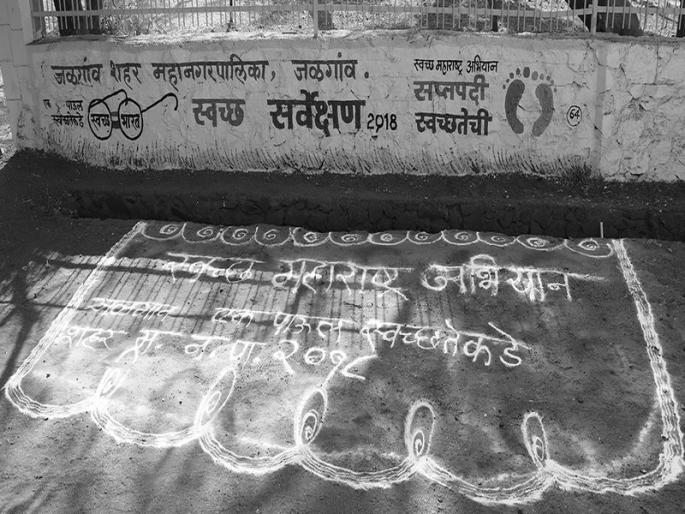 जळगांव शहर महानगरपालिका, जळगांव.
एक पाऊल
स्वच्छतेकडे
स्वच्छ भारत
स्वच्छ सर्वेक्षण 2018
स्वच्छ महाराष्ट्र अभियान
सप्तपदी
स्वच्छतेची
64
स्वच्छ महाराष्ट्र अभियान
जळगांव एक पाऊल स्वच्छतेकडे
शहर म. न. पा. २०१८